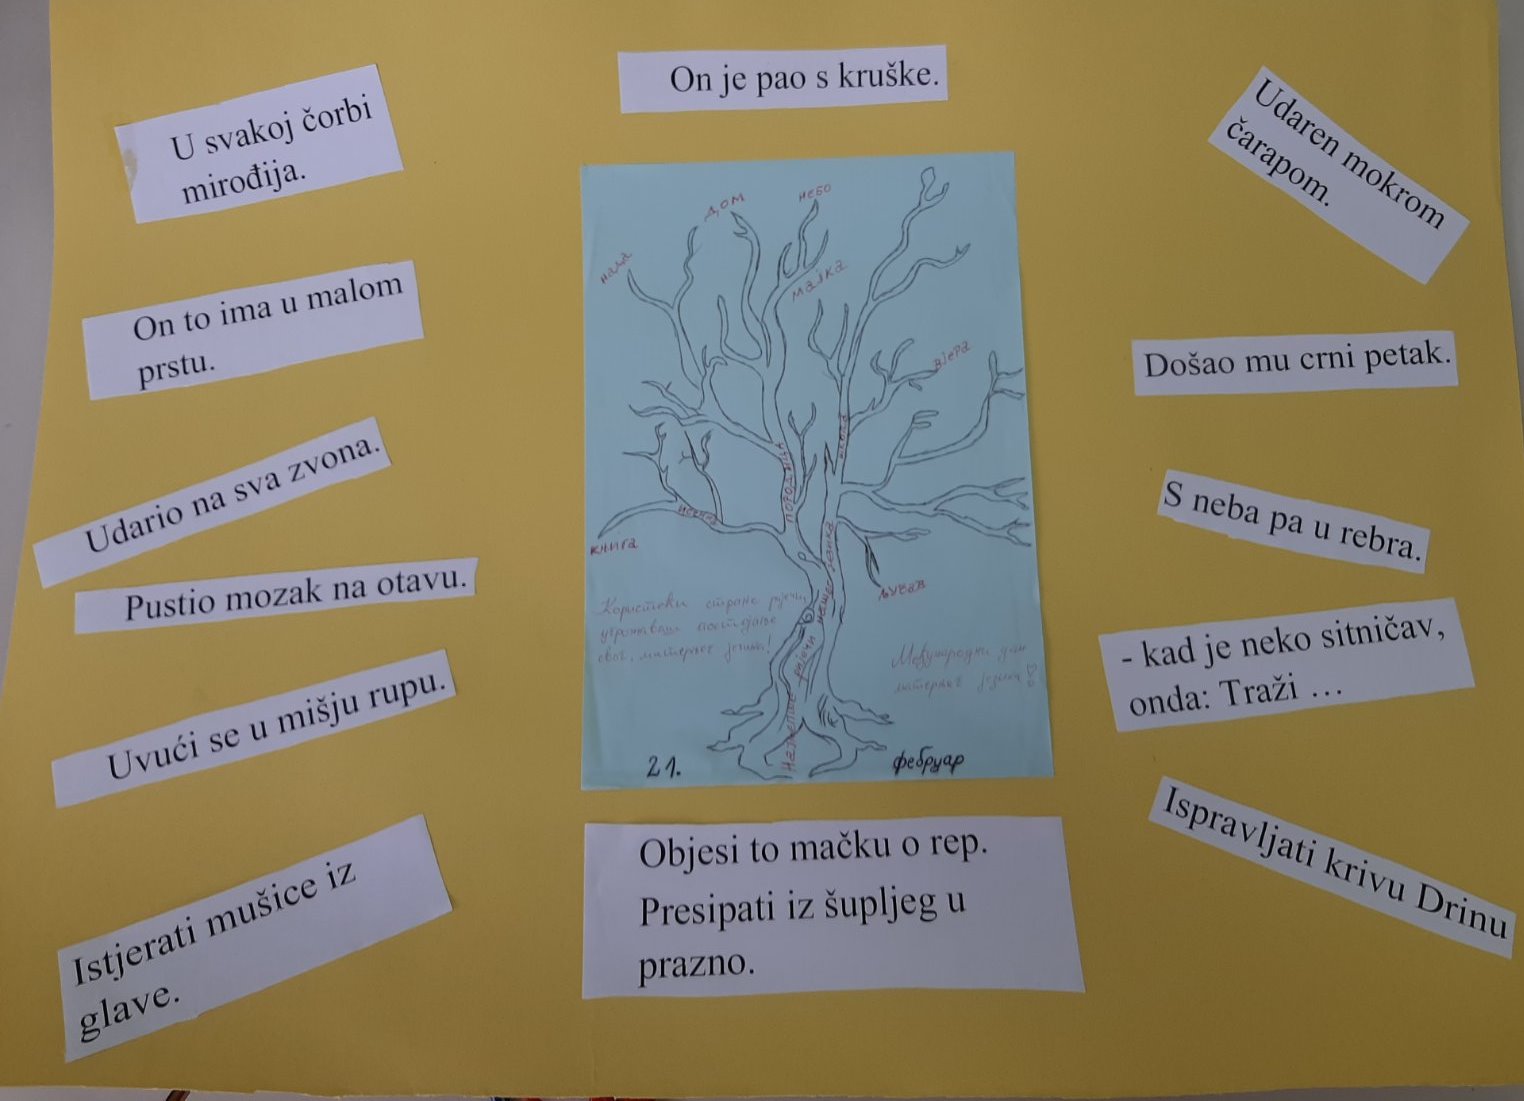 On je pao s kruške.
U svakoj čorbi
mirođija.
On to ima u malom
prstu.
Udario na sva zvona.
Pustio mozak na otavu.
Uvući se u mišju rupu.
Istjerati mušice iz
glave.
нада
дом
небо
мајка
вјера
школа
породица
књига
љубав
Најљепше ријечи нашег језика
Користећи стране ријечи
угрожаваш постојање
свог, матерњег језика!
Међународни дан
матерњег језика
21.
фебруар
Objesi to mačku o rep.
Presipati iz šupljeg u
prazno.
Udaren mokrom
čarapom.
Došao mu crni petak.
S neba pa u rebra.
- kad je neko sitničav,
onda: Traži …
Ispravljati krivu Drinu